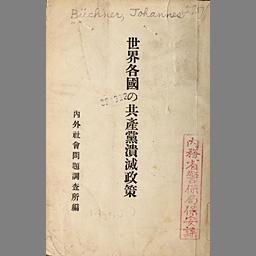 Büchner, Johannes
世界各國の共產黨潰滅政策
內外社會問題調査所編
內務省警保局保安課